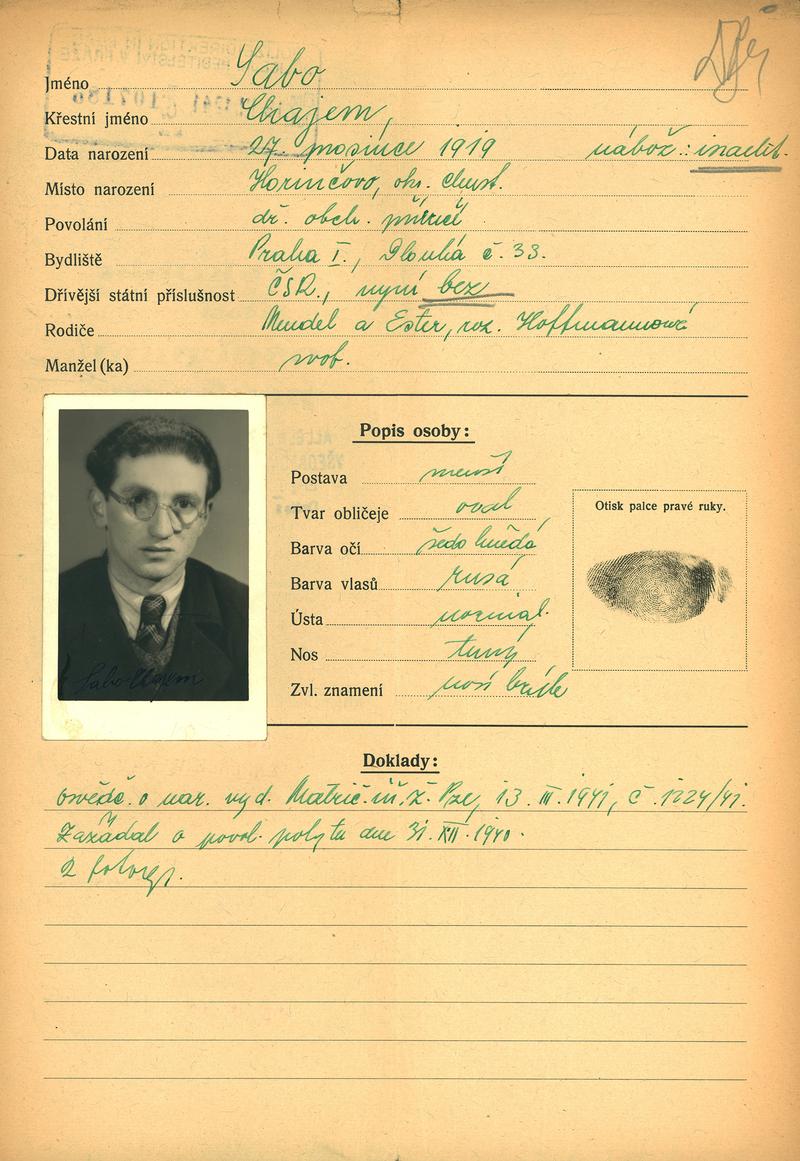 Jméno Sabo
Křestní jméno Chajem,
Data narození 27. prosince 1919 nábož.: israelit.
Místo narození Horinčovo, okr. Chust.
Povolání dř. obch. příručí
Bydliště Praha I., Dlouhá č. 33.
Dřívější státní příslušnost ČSR., nyní bez
Rodiče Mendel a Ester, roz. Hoffmannová
Manžel (ka) svob.
Popis osoby:
Postava menší
Tvar obličeje oval
Barva očí šedo hnědá
Barva vlasů rusá
Ústa normál.
Nos tupý
Zvl. znamení nosí brýle
Otisk palce pravé ruky.
Sabo Chajem
Doklady:
osvědč. o nar. vyd. Matrič. úř. ž. Pze, 13. III. 1941, č. 1224/41.
Zažádal o povol. pobytu dne 31. XII. 1940.
2 fotogr.